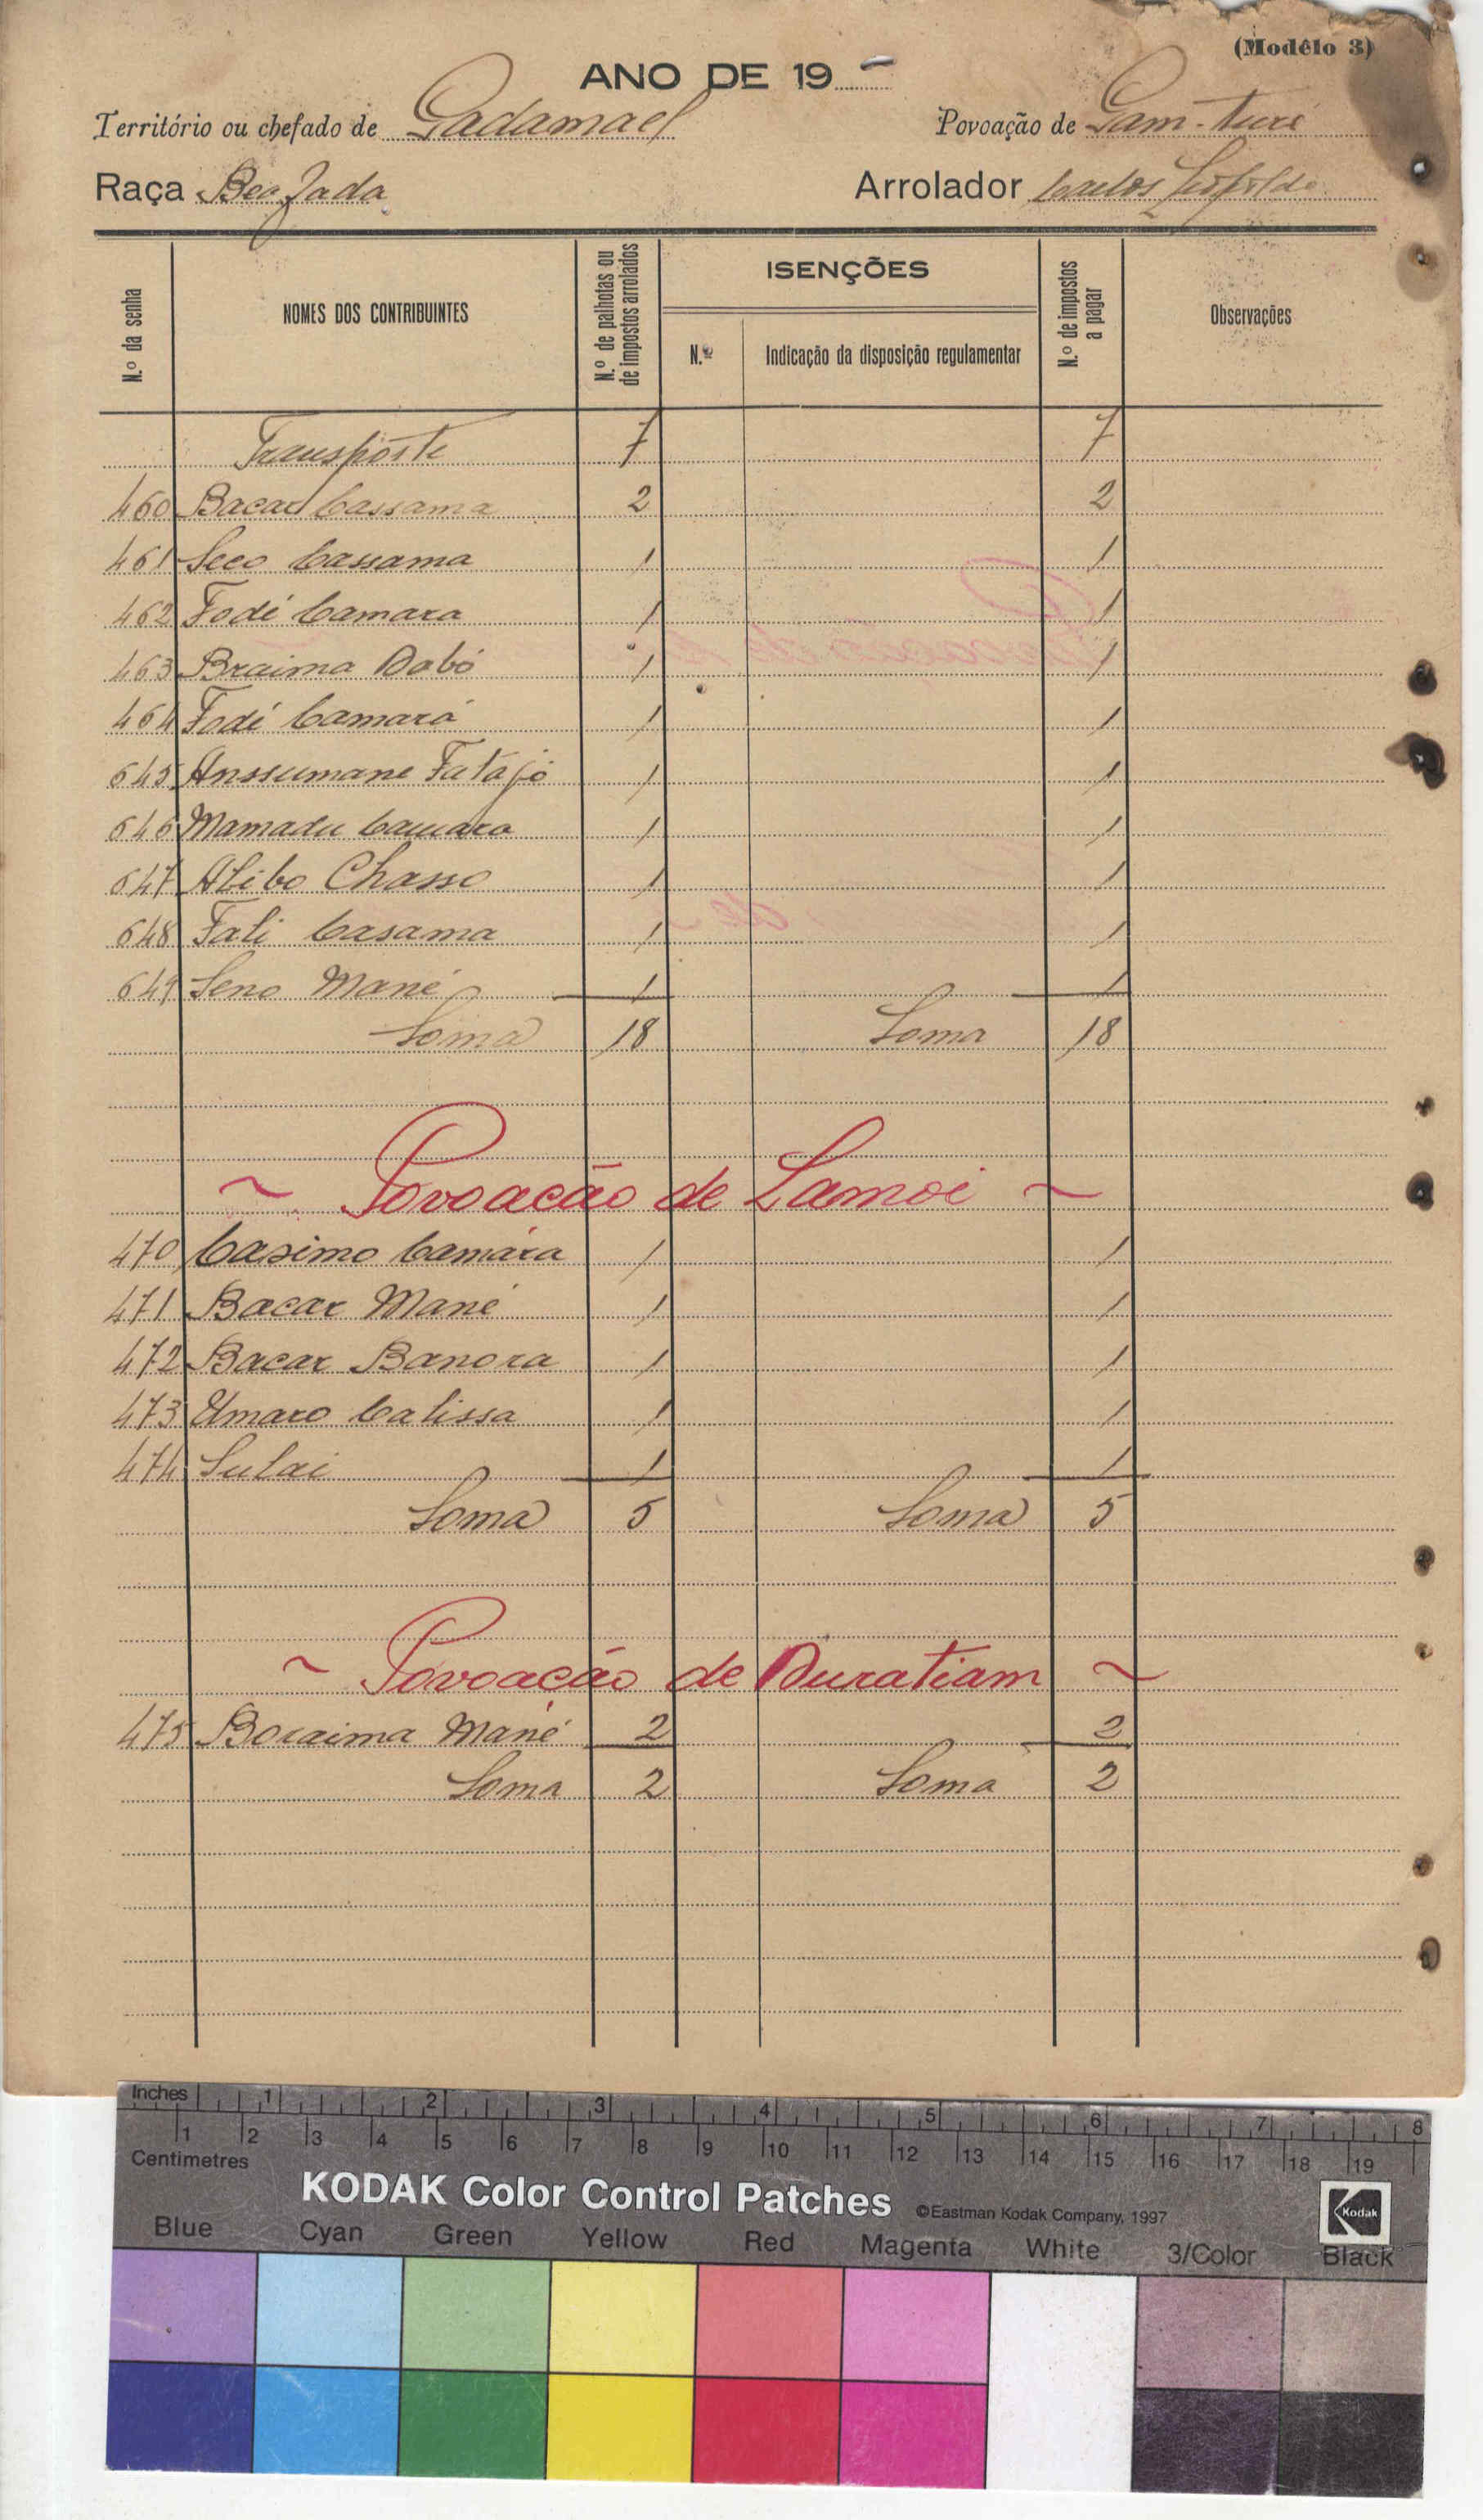 (Modêlo 3)
ANO DE 19 -
Território ou chefado de Gadamael Povoação de Gam-Ture
Raça Beafada Arrolador Carlos Leopoldo
N.º da senha
NOMES DOS CONTRIBUINTES
N.º de palhotas ou de impostos arrolados
ISENÇÕES
N.º
Indicação da disposição regulamentar
N.º de impostos a pagar
Observações
Transporte 7 7
460 Bacar Cassama 2 2
461 Seco Cassama 1 1
462 Fodé Camara 1 1
463 Braima Dabó 1 1
464 Fodé Camará 1 1
645 Anssumane Fatájó 1 1
646 Mamadu Camara 1 1
647 Alibo Chasso 1 1
648 Fali Casama 1 1
649 Seno Mané 1 1
Soma 18 Soma 18
~ Povoação de Lamoi ~
470 Casimo Camára 1 1
471 Bacar Mané 1 1
472 Bacar Banora 1 1
473 Umaro Calissa 1 1
474 Sulai 1 1
Soma 5 Soma 5
~ Povoação de Duratiam ~
475 Boraima Mané 2 2
Soma 2 Soma 2
Inches 1 2 3 4 5 6 7 8
1 2 3 4 5 6 7 8 9 10 11 12 13 14 15 16 17 18 19
Centimetres
KODAK Color Control Patches ©Eastman Kodak Company, 1997 Kodak
Blue Cyan Green Yellow Red Magenta White 3/Color Black